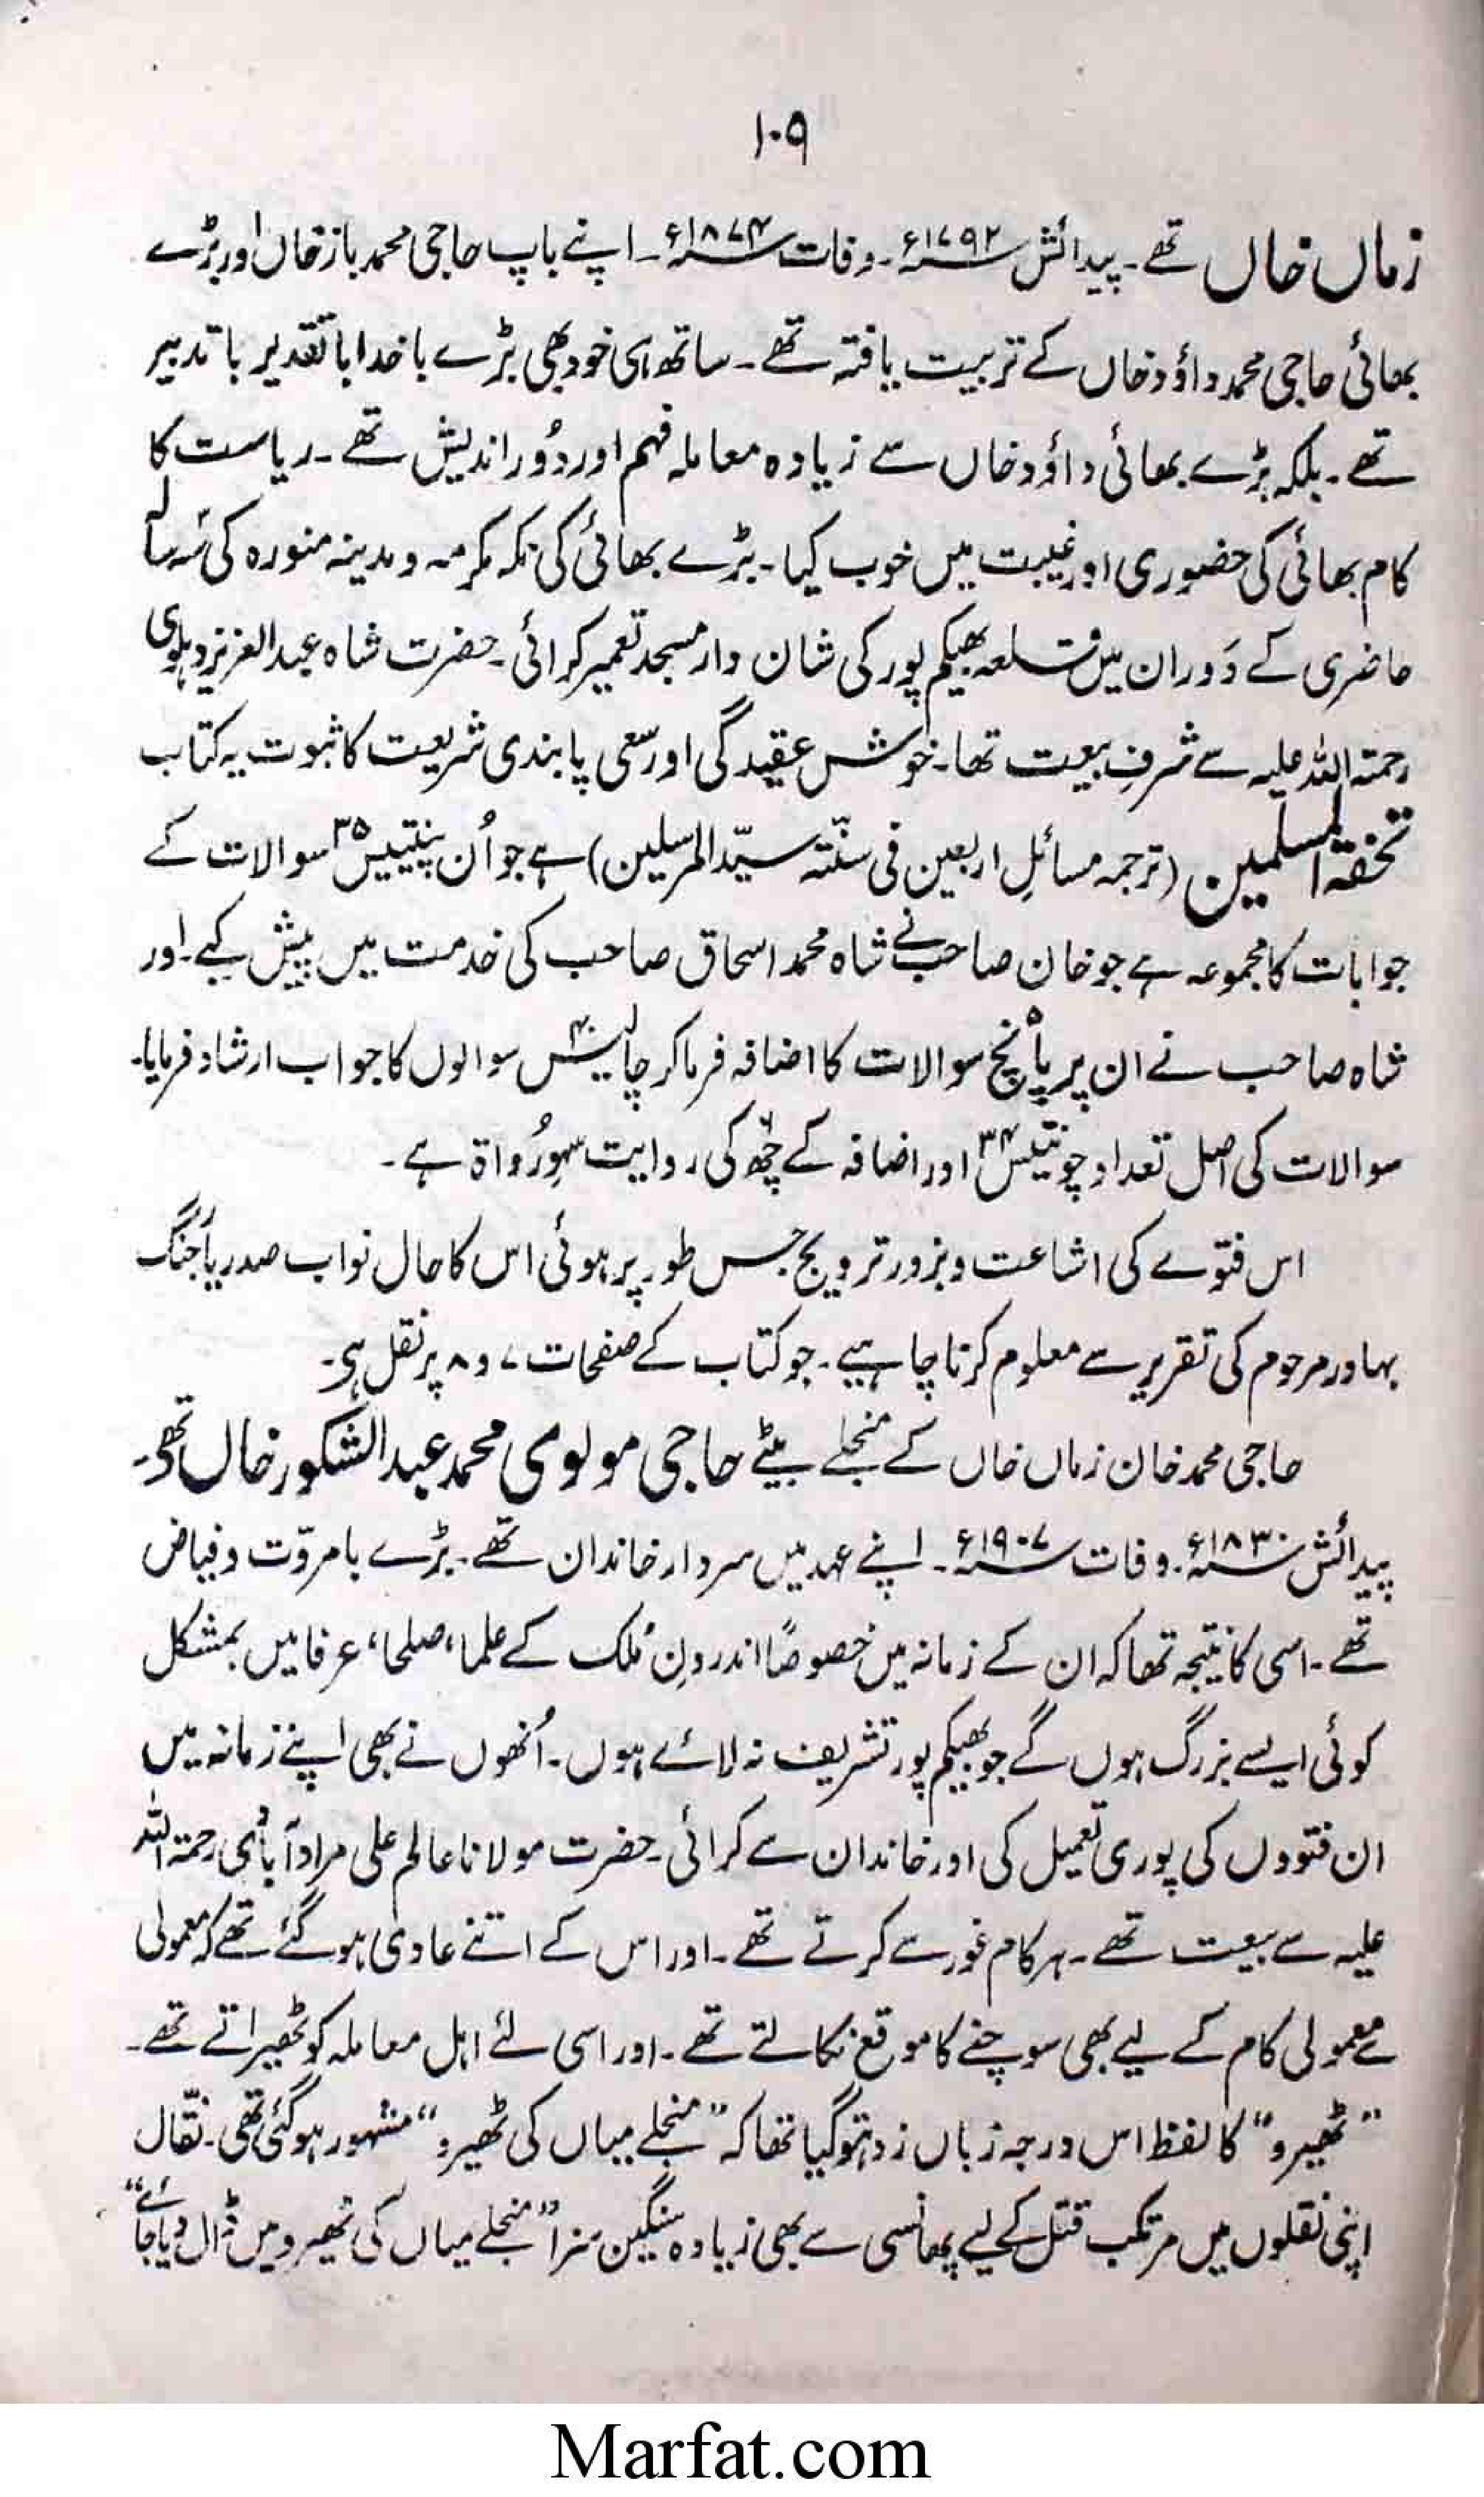 ۱۰۹
زماں خاں تھے۔ پیدائش ۱۷۹۲ء۔ وفات ۱۸۷۴ء۔ اپنے باپ حاجی محمد باز خاں اور بڑے
بھائی حاجی محمد داؤد خاں کے تربیت یافتہ تھے۔ ساتھ ہی خود بھی بڑے باخدا باتقدیر باتدبیر
تھے۔ بلکہ بڑے بھائی داؤد خاں سے زیادہ معاملہ فہم اور دُور اندیش تھے۔ ریاست کا
کام بھائی کی حضوری اور غیبت میں خوب کیا۔ بڑے بھائی کی مکہ مکرمہ و مدینہ منورہ کی سَہ سالہ
حاضری کے دَوران میں قلعہ بھیکم پور کی شان دار مسجد تعمیر کرائی۔ حضرت شاہ عبدالعزیز دہلوی
رحمتہ اللہ علیہ سے شرفِ بیعت تھا۔ خوش عقیدگی اور سعی پابندی شریعت کا ثبوت یہ کتاب
تحفۃ المسلمین (ترجمہ مسائلِ اربعین فی سنّتہ سیّد المرسلین) ہے جو اُن پینتیس ۳۵ سوالات کے
جوابات کا مجموعہ ہے جو خان صاحب نے شاہ محمد اسحاق صاحب کی خدمت میں پیش کیے۔ اور
شاہ صاحب نے ان پر پانچ ۵ سوالات کا اضافہ فرما کر چالیس ۴۰ سوالوں کا جواب ارشاد فرمایا۔
سوالات کی اصل تعداد چونتیس ۳۴ اور اضافہ کے چھ ۶ کی روایت سہوِ رُواۃ ہے۔
اس فتوے کی اشاعت و بزور ترویج جس طور پر ہوئی اس کا حال نواب صدر یار جنگ
بہادر مرحوم کی تقریر سے معلوم کرنا چاہیے۔ جو کتاب کے صفحات ۷ و ۸ پر نقل ہی۔
حاجی محمد خان زماں خاں کے منجلے بیٹے حاجی مولوی محمد عبدالشکور خاں تھے۔
پیدائش ۱۸۳۰ء۔ وفات ۱۹۰۷ء۔ اپنے عہد میں سردار خاندان تھے۔ بڑے بامروّت و فیاض
تھے۔ اسی کا نتیجہ تھا کہ ان کے زمانہ میں خصوصًا اندرونِ مُلک کے علما، صلحا، عرفا میں بمشکل
کوئی ایسے بزرگ ہوں گے جو بھیکم پور تشریف نہ لائے ہوں۔ اُنھوں نے بھی اپنے زمانہ میں
ان فتووں کی پوری تعمیل کی اور خاندان سے کرائی۔ حضرت مولانا عالم علی مرادآبادی رحمۃ اللہ
علیہ سے بیعت تھے۔ ہر کام غور سے کرتے تھے۔ اور اس کے اتنے عادی ہو گئے تھے کہ معمولی
سے معمولی کام کے لیے بھی سوچنے کا موقع نکالتے تھے۔ اور اسی لئے اہل معاملہ کو ٹھیراتے تھے۔
”ٹھیرو“ کا لفظ اس درجہ زباں زد ہو گیا تھا کہ ”منجلے میاں کی ٹھیرو“ مشہور ہو گئی تھی۔ نقّال
اپنی نقلوں میں مرتکب قتل کے لیے پھانسی سے بھی زیادہ سنگین سزا ”منجلے میاں کی ٹھیرو میں ڈال دیا جائے“
Marfat.com